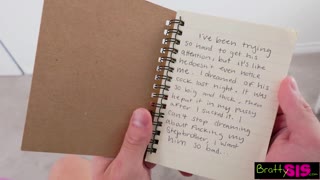 I've been trying
so hard to get his
attention, but it's like
he doesn't even notice
me. I dreamed of his
cock last night, it was
so big and thick. Then
he put it in my pussy
after I sucked it. I
can't stop dreaming
about fucking my
stepbrother. I want
him so bad.
BrattySIS